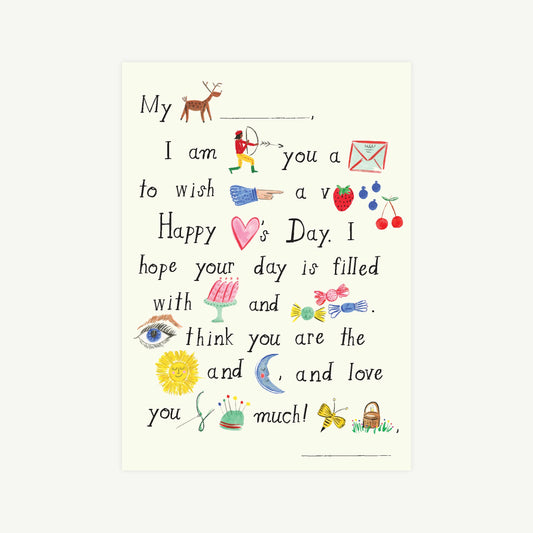 My ,
I am you a
to wish a v
Happy 's Day. I
hope your day is filled
with and .
think you are the
and , and love
you much! ,